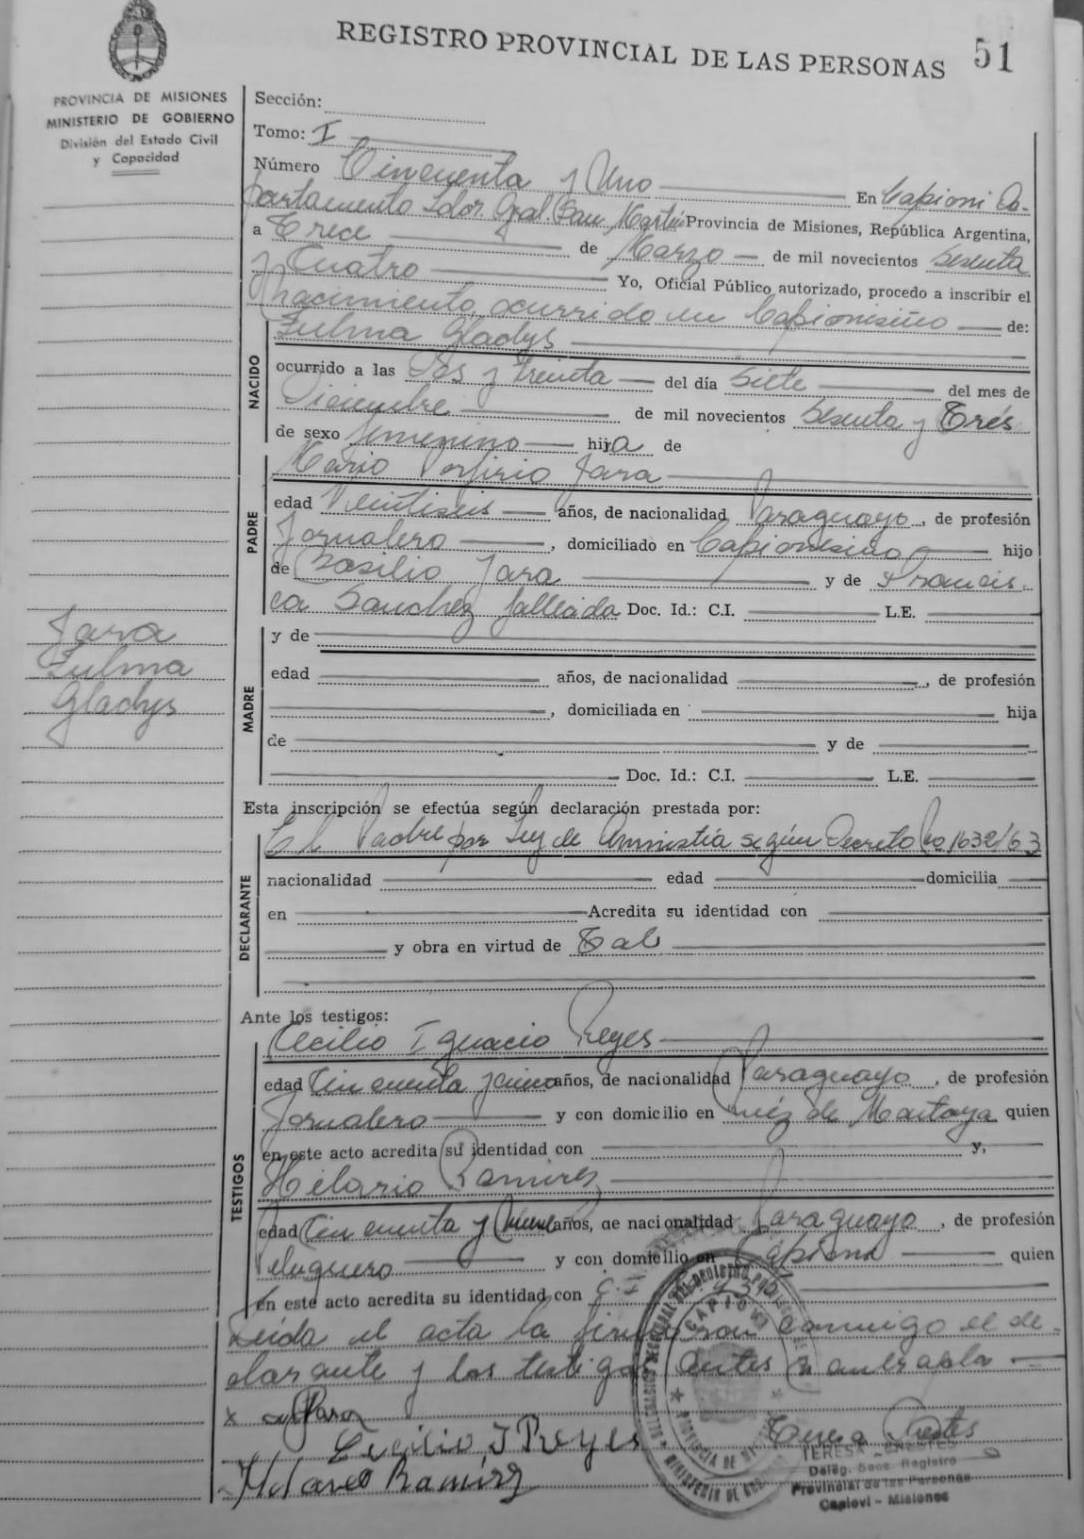 REGISTRO PROVINCIAL DE LAS PERSONAS 51
PROVINCIA DE MISIONES
MINISTERIO DE GOBIERNO
División del Estado Civil
y Capacidad
Sección:
Tomo: I
Número Cincuenta y Uno En Capioni De-
partamento Ldor. Gral. San Martín Provincia de Misiones, República Argentina,
a Trece de Marzo de mil novecientos Sesenta
y Cuatro Yo, Oficial Público autorizado, procedo a inscribir el
nacimiento ocurrido en Capionisiño de:
NACIDO
Zulma Gladys
ocurrido a las Dos y treinta del día Siete del mes de
Diciembre de mil novecientos Sesenta y Trés
de sexo femenino hija de
PADRE
Mario Porfirio Jara
edad Veintiseis años, de nacionalidad Paraguayo, de profesión
Jornalero, domiciliado en Capionisiño hijo
de Basilio Jara y de Francis-
ca Sanchez fallecida Doc. Id.: C.I. L.E.
Jara
Zulma
Gladys
MADRE
y de
edad años, de nacionalidad , de profesión
, domiciliada en hija
de y de
Doc. Id.: C.I. L.E.
Esta inscripción se efectúa según declaración prestada por:
DECLARANTE
El Padre por Ley de Amnistía según Decreto No 1632/63
nacionalidad edad domicilia
en Acredita su identidad con
y obra en virtud de Tal
Ante los testigos:
TESTIGOS
Cecilio Ignacio Reyes
edad Cincuenta y cinco años, de nacionalidad Paraguayo, de profesión
Jornalero y con domicilio en Ruíz de Montoya quien
en este acto acredita su identidad con y,
Hilario Ramirez
edad Cincuenta y años, de nacionalidad Paraguayo, de profesión
Peluquero y con domicilio en Capioni quien
en este acto acredita su identidad con C.I.
Leida el acta la firmaron conmigo el de-
clarante y los testigos antes
x Jara
Cecilio I Reyes
Ramirez
Teresa Prestes
TERESA PRESTES
Deleg. Secc. Registro
Provincial de las Personas
Capiovi - Misiones